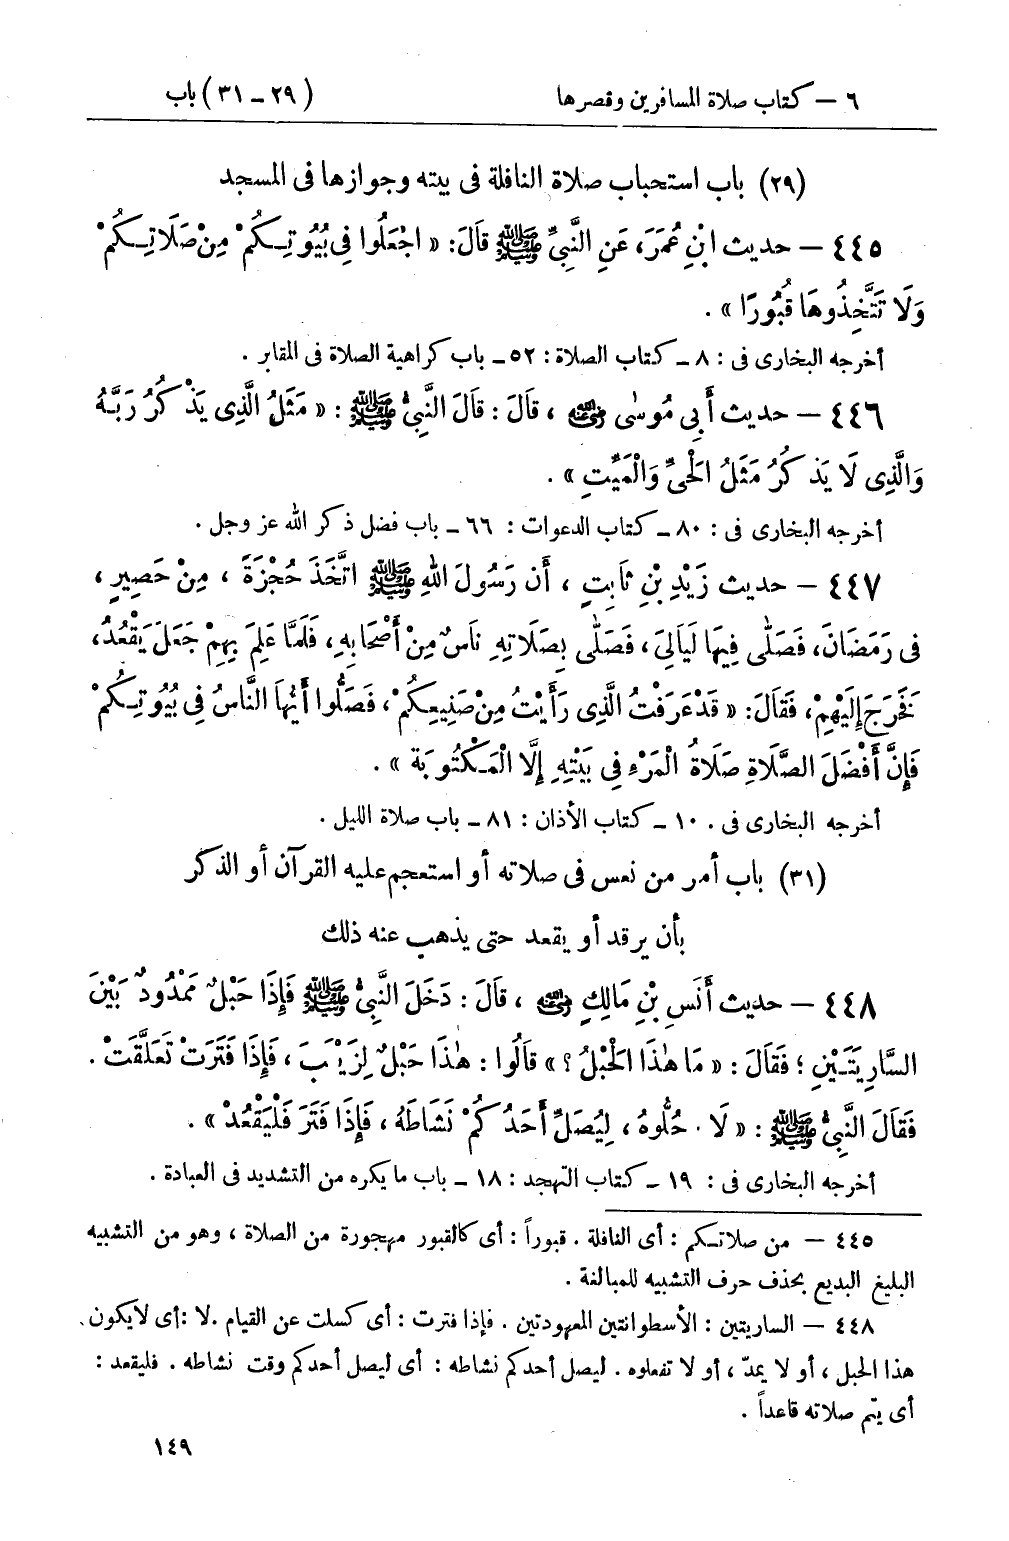 ٦ — كتاب صلاة المسافرين وقصرها (٢٩ – ٣١) باب
(٢٩) باب استحباب صلاة النافلة فى بيته وجوازها فى المسجد
٤٤٥ — حديث ابْنِ عُمَرَ، عَنِ النَّبِيِّ ﷺ قَالَ: « اجْعَلُوا فِى بُيُوتِكُمْ مِنْ صَلَاتِكُمْ
وَلَا تَتَّخِذُوهَا قُبُورًا » .
أخرجه البخارى فى : ٨ ـ كتاب الصلاة : ٥٢ ـ باب كراهية الصلاة فى المقابر .
٤٤٦ — حديث أَبِى مُوسَى رضي الله عنه ، قَالَ : قَالَ النَّبِيُّ ﷺ : « مَثَلُ الَّذِى يَذْكُرُ رَبَّهُ
وَالَّذِى لَا يَذْكُرُ مَثَلُ الْحَىِّ وَالْمَيِّتِ » .
أخرجه البخارى فى : ٨٠ ـ كتاب الدعوات : ٦٦ ـ باب فضل ذكر الله عز وجل .
٤٤٧ — حديث زَيْدِ بْنِ ثَابِتٍ ، أَن رَسُولَ اللهِ ﷺ اتَّخَذَ حُجْزَةً ، مِنْ حَصِيرٍ ،
فِى رَمَضَانَ، فَصَلَّى فِيهَا لَيَالِىَ، فَصَلَّى بِصَلَاتِهِ نَاسٌ مِنْ أَصْحَابِهِ، فَلَمَّا عَلِمَ بِهِمْ جَعَلَ يَقْعُدُ،
فَخَرَجَ إِلَيْهِمْ، فَقَالَ: « قَدْ عَرَفْتُ الَّذِى رَأَيْتُ مِنْ صَنِيعِكُمْ، فَصَلُّوا أَيُّهَا النَّاسُ فِى بُيُوتِكُمْ
فَإِنَّ أَفْضَلَ الصَّلَاةِ صَلَاةُ الْمَرْءِ فِى بَيْتِهِ إِلَّا الْمَكْتُوبَةَ » .
أخرجه البخارى فى . ١٠ ـ كتاب الأذان : ٨١ ـ باب صلاة الليل .
(٣١) باب أمر من نعس فى صلاته أو استعجم عليه القرآن أو الذكر
بأن يرقد أو يقعد حتى يذهب عنه ذلك
٤٤٨ — حديث أَنَسِ بْنِ مَالِكٍ رضي الله عنه ، قَالَ : دَخَلَ النَّبِيُّ ﷺ فَإِذَا حَبْلٌ مَمْدُودٌ بَيْنَ
السَّارِيَتَيْنِ ؛ فَقَالَ : « مَا هٰذَا الْحَبْلُ ؟ » قَالُوا : هٰذَا حَبْلٌ لِزَيْنَبَ ، فَإِذَا فَتَرَتْ تَعَلَّقَتْ .
فَقَالَ النَّبِيُّ ﷺ : « لَا . حُلُّوهُ ، لِيُصَلِّ أَحَدُكُمْ نَشَاطَهُ ، فَإِذَا فَتَرَ فَلْيَقْعُدْ » .
أخرجه البخارى فى : ١٩ ـ كتاب التهجد : ١٨ ـ باب ما يكره من التشديد فى العبادة .
٤٤٥ — من صلاتكم : أى النافلة . قبوراً : أى كالقبور مهجورة من الصلاة ، وهو من التشبيه
البليغ البديع بحذف حرف التشبيه للمبالغة .
٤٤٨ — الساريتين : الأسطوانتين المعهودتين . فإذا فترت : أى كسلت عن القيام . لا : أى لايكون
هذا الحبل ، أو لا يمدّ ، أو لا تفعلوه . ليصل أحدكم نشاطه : أى ليصل أحدكم وقت نشاطه . فليقعد :
أى يتم صلاته قاعداً .
١٤٩